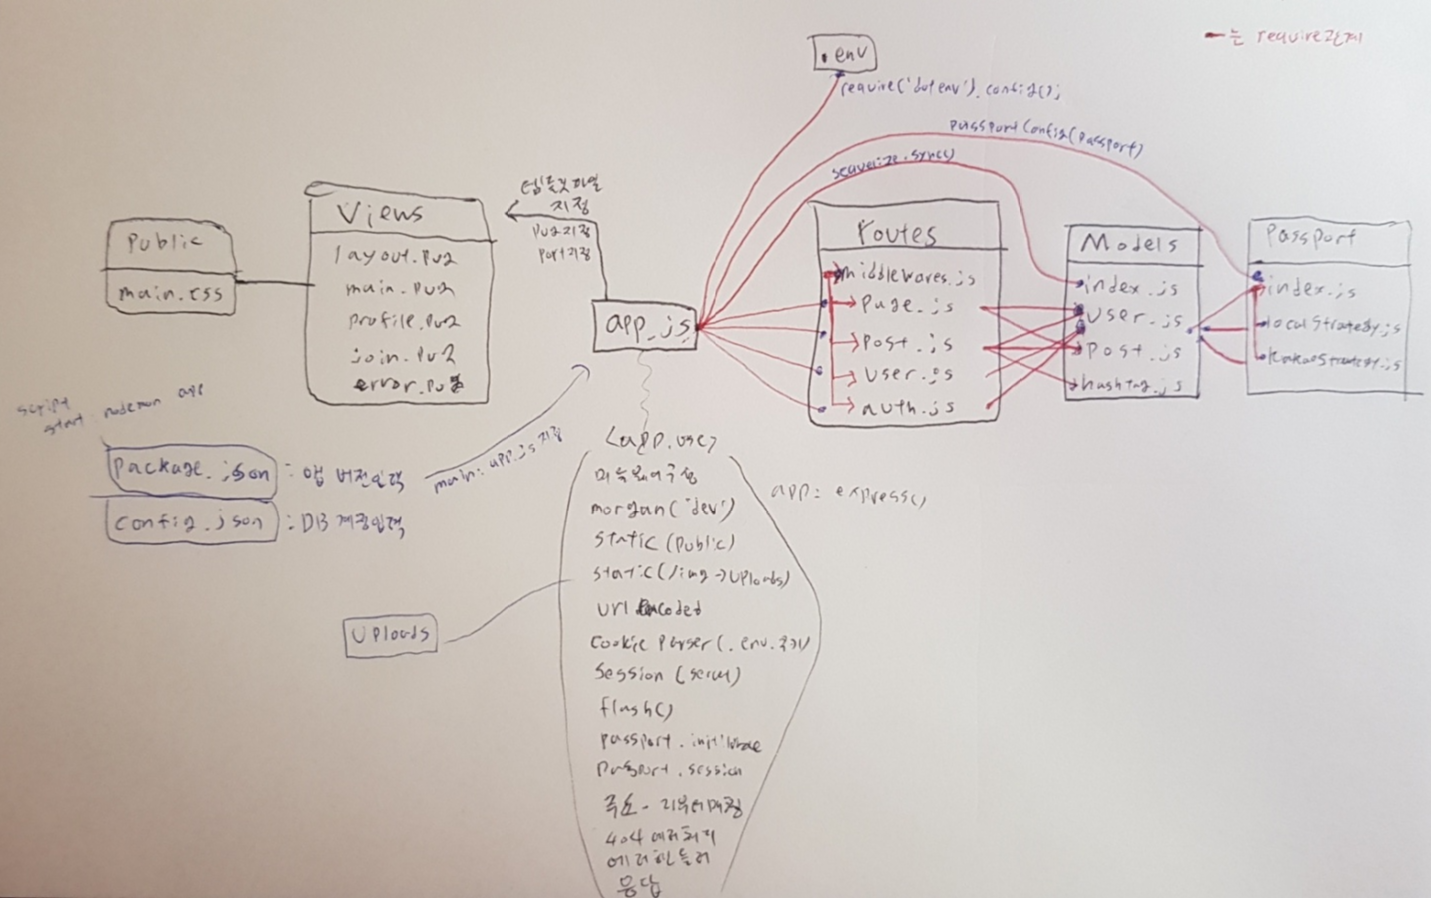 는 require관계
.env
require('dotenv').config();
passportConfig(passport)
sequelize.sync()
템플릿파일
지정
pug지정
port지정
Public
main.css
Views
layout.pug
main.pug
profile.pug
join.pug
error.pug
app.js
Routes
middlewares.js
page.js
post.js
user.js
auth.js
Models
index.js
user.js
post.js
hashtag.js
Passport
index.js
localStrategy.js
kakaoStrategy.js
script
start: nodemon app
package.json : 앱 버전입력
config.json : DB 계정입력
main: app.js 지정
<app.use>
미들웨어구성
morgan('dev')
static(public)
static(/img→uploads)
url Encoded
cookie Parser(.env.쿠키)
Session (secret)
flash()
passport.initialize
passport.session
주소-라우터매칭
404 에러처리
에러핸들러
응답
app = express()
Uploads